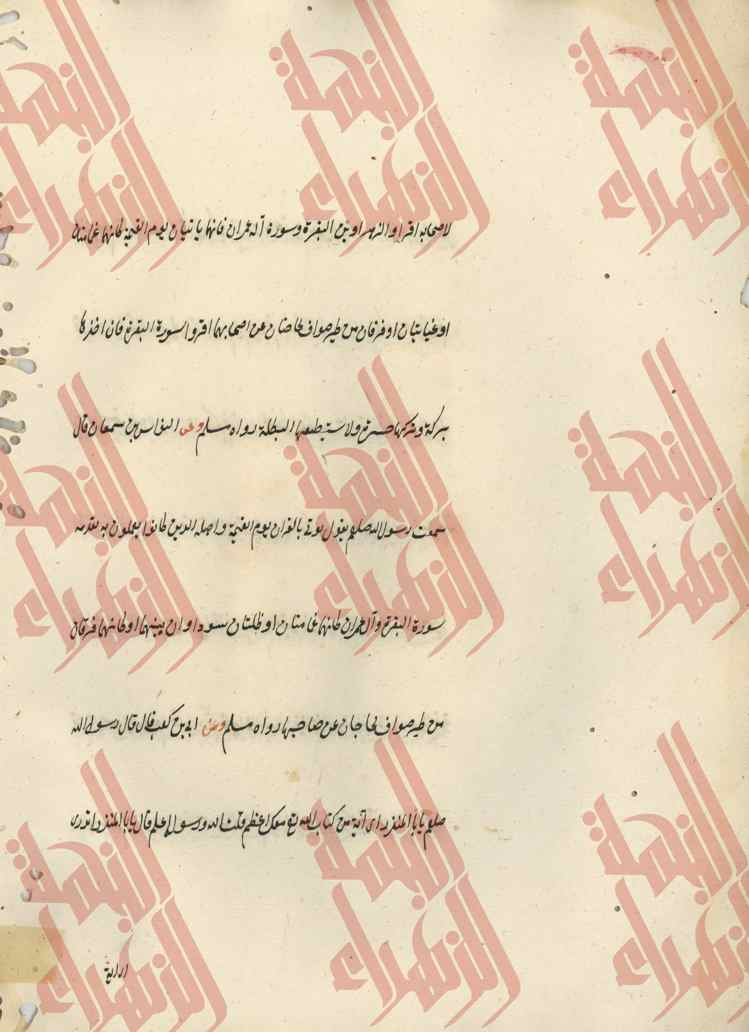 لاصحابه اقراوا الزهراوين البقرة وسورة آل عمران فانهما ياتيان يوم القيمة كانهما غمامتان
او غيايتان او فرقان من طير صواف تحاجان عن اصحابهما اقروا سورة البقرة فان اخذها
بركة وتركها حسرة ولا تستطيعها البطلة رواه مسلم وعن النواس بن سمعان قال
سمعت رسول الله صلعم يقول يوتى بالقران يوم القيمة واهله الذين كانوا يعملون به تقدمه
سورة البقرة وآل عمران كانهما غمامتان او ظلتان سوداوان بينهما او كانهما فرقان
من طير صواف تحاجان عن صاحبهما رواه مسلم وعن ابي بن كعب قال قال رسول الله
صلعم يا با المنذر اي آية من كتاب الله تع معك اعظم قلت الله ورسوله اعلم قال يا با المنذر اتدري
اي آية